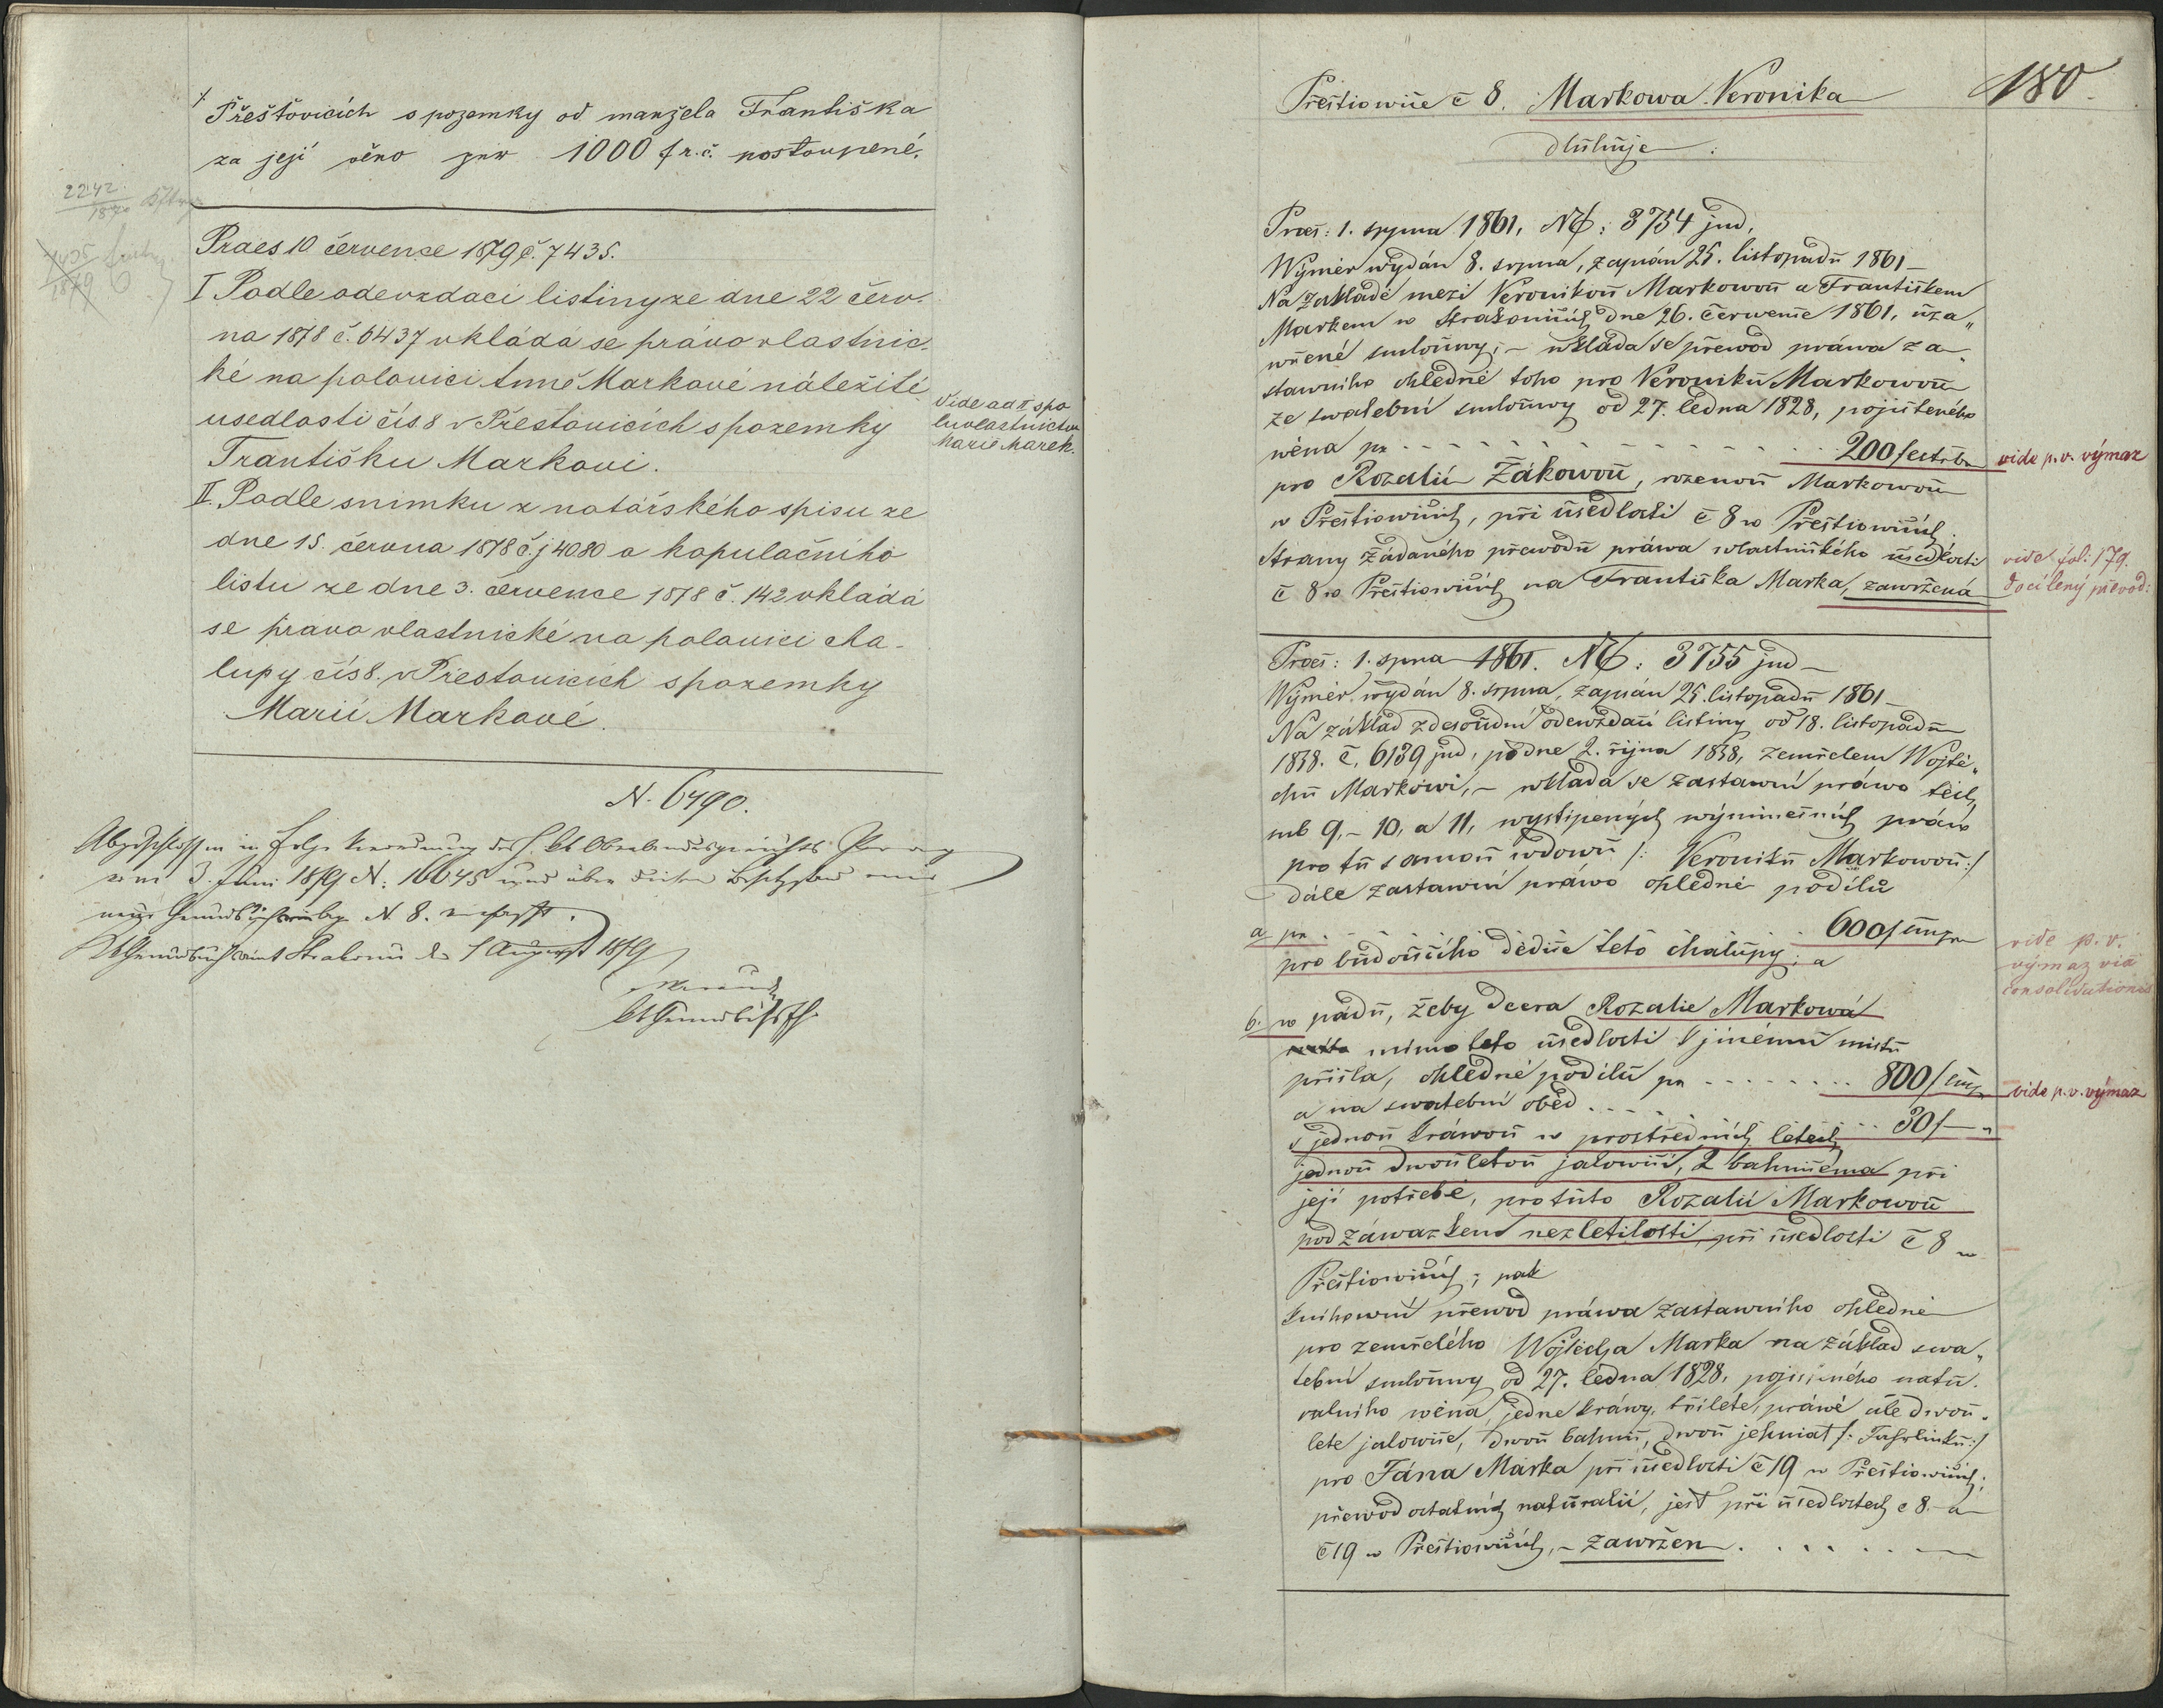 Přešťovicích s pozemky od manžela Františka
za její věno pr 1000 f r.č. postoupené.
2242
1870
Praes 10 července 1879 č. 7435.
7435
1879
I Podle odevzdací listiny ze dne 22 červ-
na 1878 č. 6437 vkládá se právo vlastnic
ké na polovici Anně Markové náležité
usedlosti čís 8 v Přestovicích s pozemky
Františku Markovi.
Vide ad II spo
luvlastnictvu
Marie Marek.
II. Podle snimku z notářského spisu ze
dne 15. června 1878 čj 4080 a kopulačního
listu ze dne 3. července 1878 č. 142 vkládá
se pravo vlastnické na polovici cha-
lupy čís 8. v Přestovicích s pozemky
Marii Markové.
N. 6490.
Abgeschlossen in Folge Verordnung des h. kk Oberlandesgerichts Prag
vom 3. Juni 1879 N: 16645 und über diesen Besitzstand eine
neue Grundbuchseinlage N. 8. verfasst.
kk Grundbuchsamt Strakonic den 1 August 1879
kk Grundbuchsfh
180
Přeštiowiče č 8. Markowa Veronika
dluhuje:
Praes: 1. srpna 1861, No: 3754 jud,
Wýměr wydán 8. srpna, zapsán 25. listopadu 1861
Na základě mezi Veronikou Markowou a Františkem
Markem w Strakonicích dne 26. Července 1861, uza„
wřené smlouwy; – wkláda se přewod práwa za-
stawního ohledně toho pro Veroniku Markowou
ze swatební smlouwy od 27. ledna 1828, pojištěného
wěna pr 200 f
vide p.v. výmaz
pro Rozalii Žákowou, rozenou Markowou
w Přeštiowicích, při usedlosti č 8 w Přeštiowicích.
Strany žádaného přewodu práwa wlastnického usedlosti
č 8 w Přeštiowicích na Františka Marka, zawržená
vide fol: 179.
docílený převod:
Praes: 1. srpna 1861. No: 3755 jud
Wýměr wydán 8. srpna, zapsán 25. listopadu 1861
Na základ zdesoudní odewzdací listiny od 18. listopadu
1838. č. 6139 jud, po dne 2. října 1838, zemřelem Wojtě„
chu Markowi, – wkládá se zastawní práwo těch,
sub 9, – 10, a 11, wystipených wýminečních práw
pro tu samou wdowu /: Veroniku Markowou :/
dále zastawní práwo ohledně podílu
a pr 600 f
pro budoucího dědice této chalupy; a
vide p.v.
výmaz via
consolidationis
b. w pádu, žeby dcera Rozalie Markowá
mimo této usedlosti k jinému místu
přišla, ohledně podílu pr 800 f
vide p.v. výmaz
a na swatební oběd 30 f
s jednou kráwou w prostředních letech
jednou dwouletou jalowicí, 2 bahnicema při
její potřebě, pro tuto Rozalii Markowou
pod záwazkem nezletilosti, při usedlosti č 8 w
Přeštiowicích; pak
knihowní přewod práwa zastawního ohledně
pro zemřelého Wojtěcha Marka na základ swa„
tební smlouwy od 27. ledna 1828, pojištěného natu-
ralního wěna, jedne kráwy, tříleté, práwě ale dwou„
leté jalowice, dwou bahnic, dwou jehniat /: :/
pro Jána Marka při usedlosti č 19 w Přeštiowicích;
přewod ostatních naturalií, jest při usedlostech č 8 – a
č 19 w Přeštiowicích, – zawržen